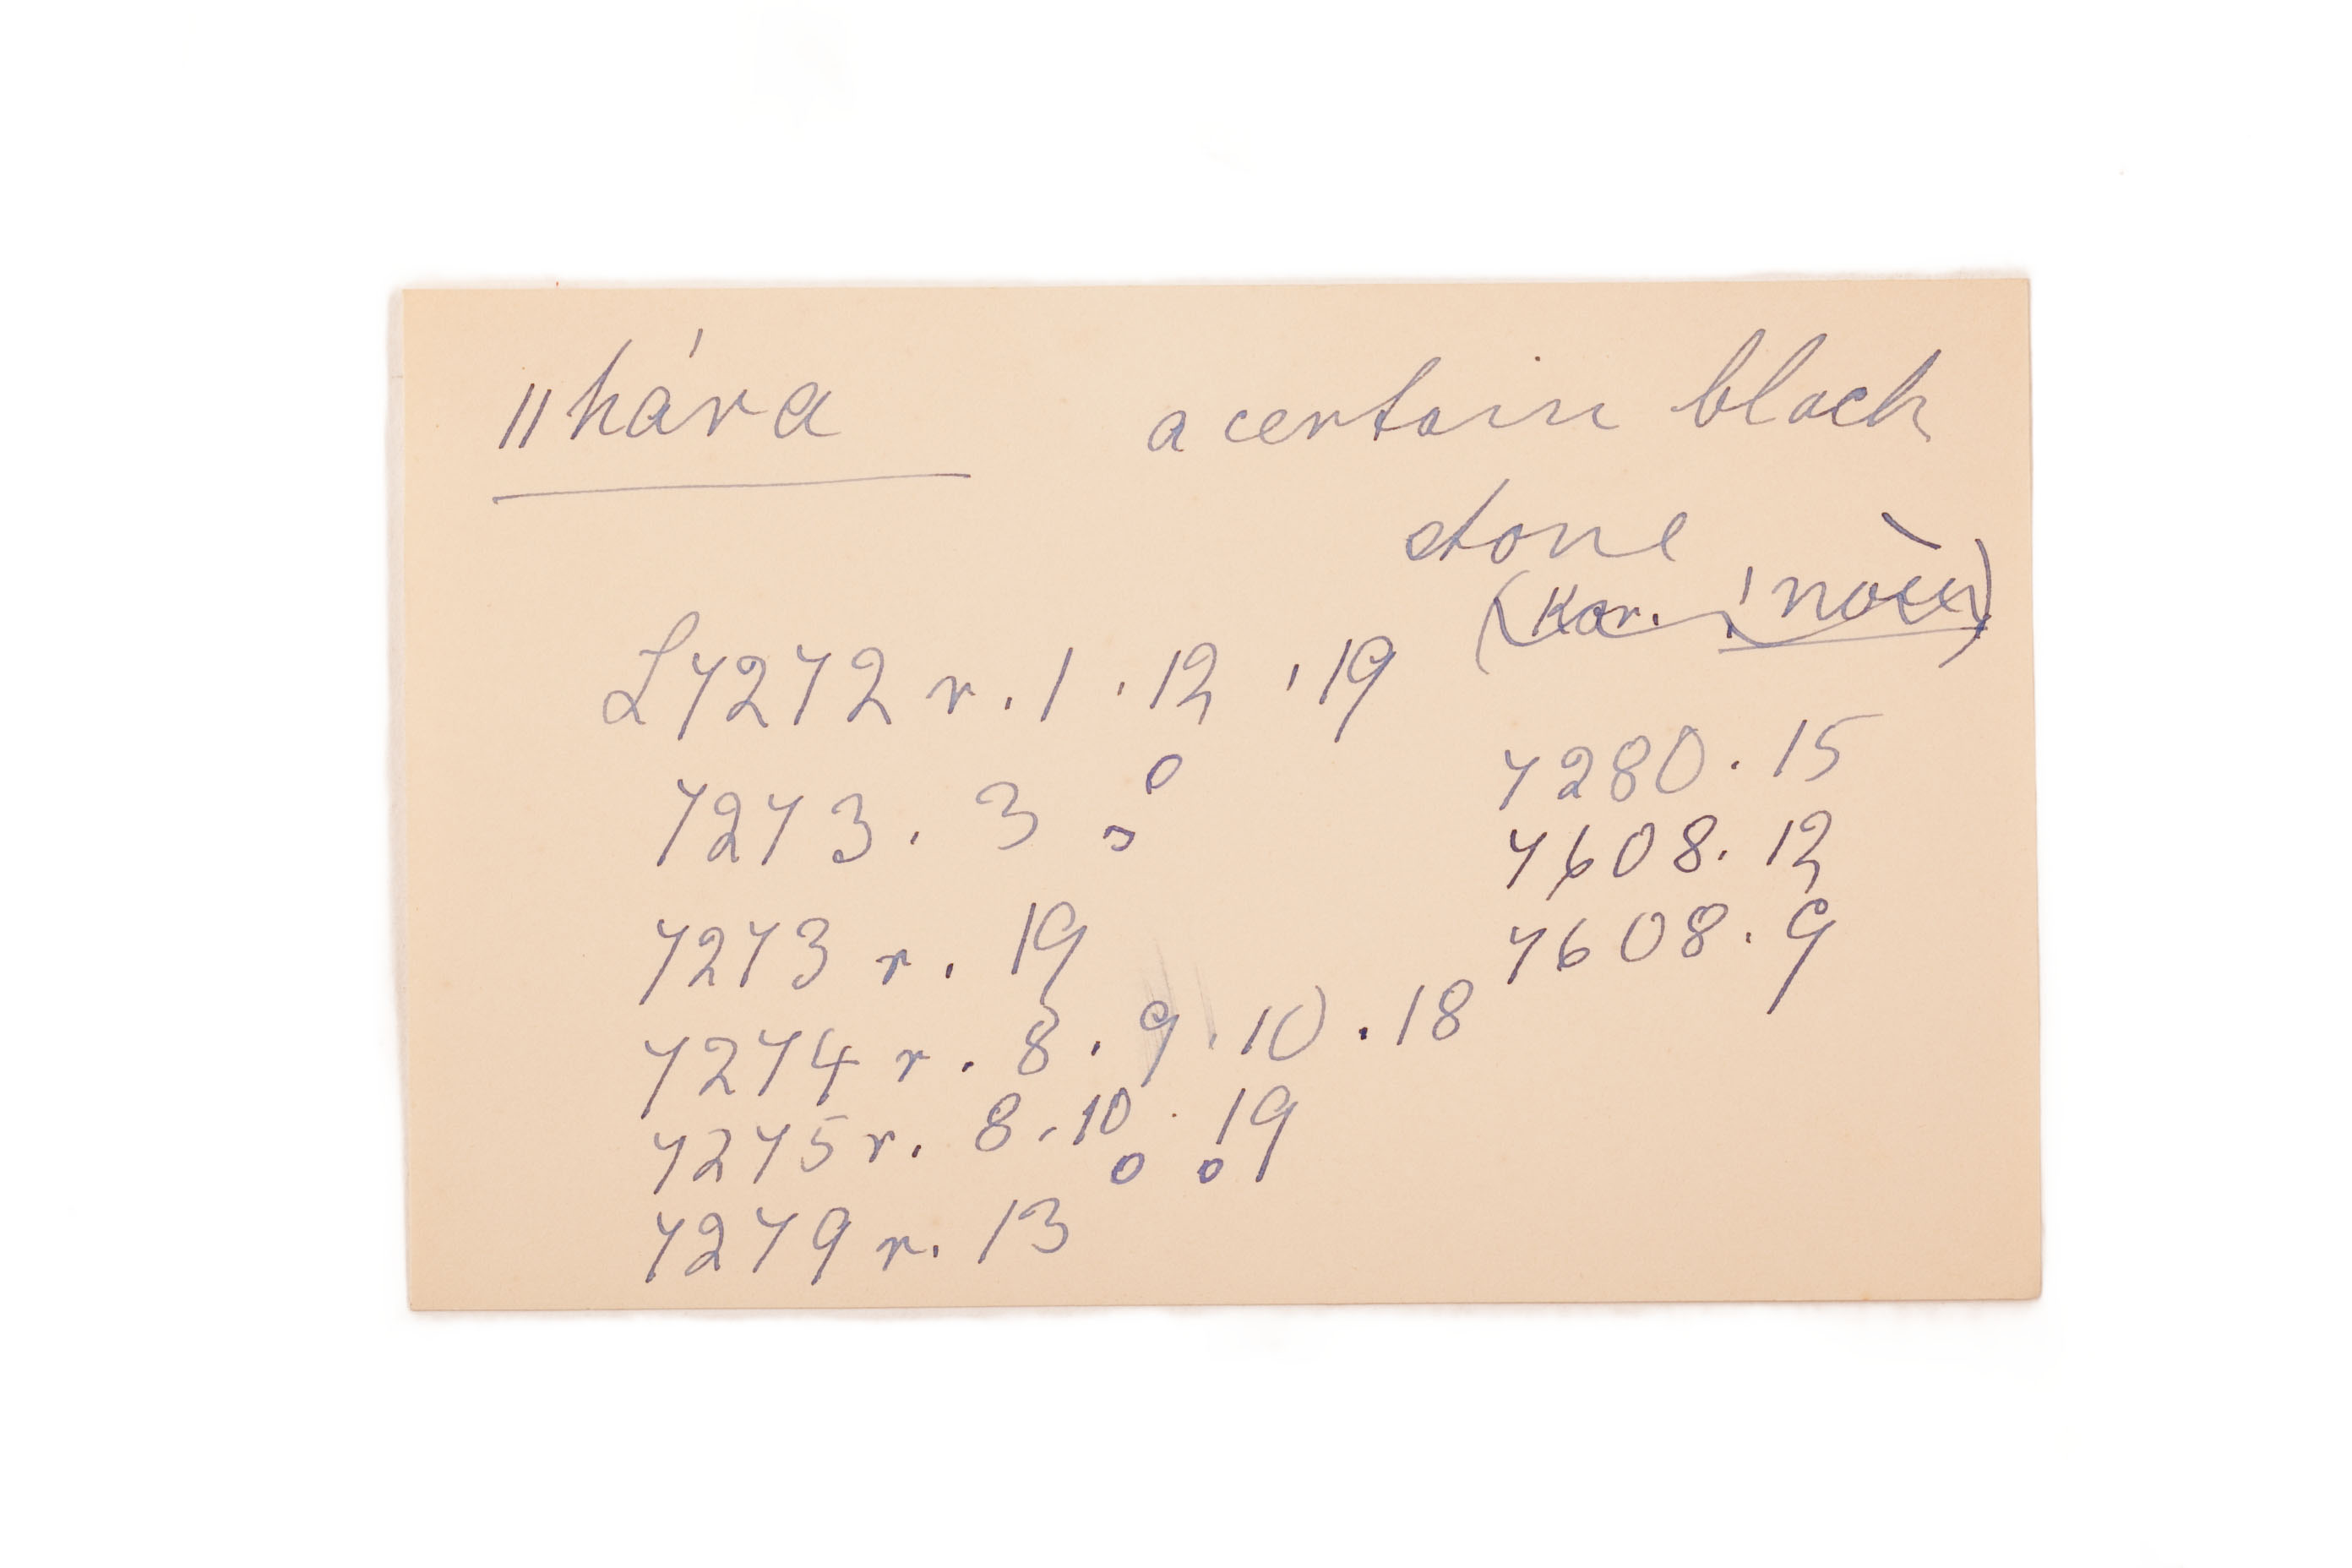 ||hára a certain black
stone
(Kor. !nòu)
L7272 r. 1 . 12 , 19
7273. 3
7273 r. 19
7274 r. 8 . 9 . 10 . 18
7275 r. 8 . 10 . 19
7279 r. 13
7280. 15
7608. 12
7608. 9